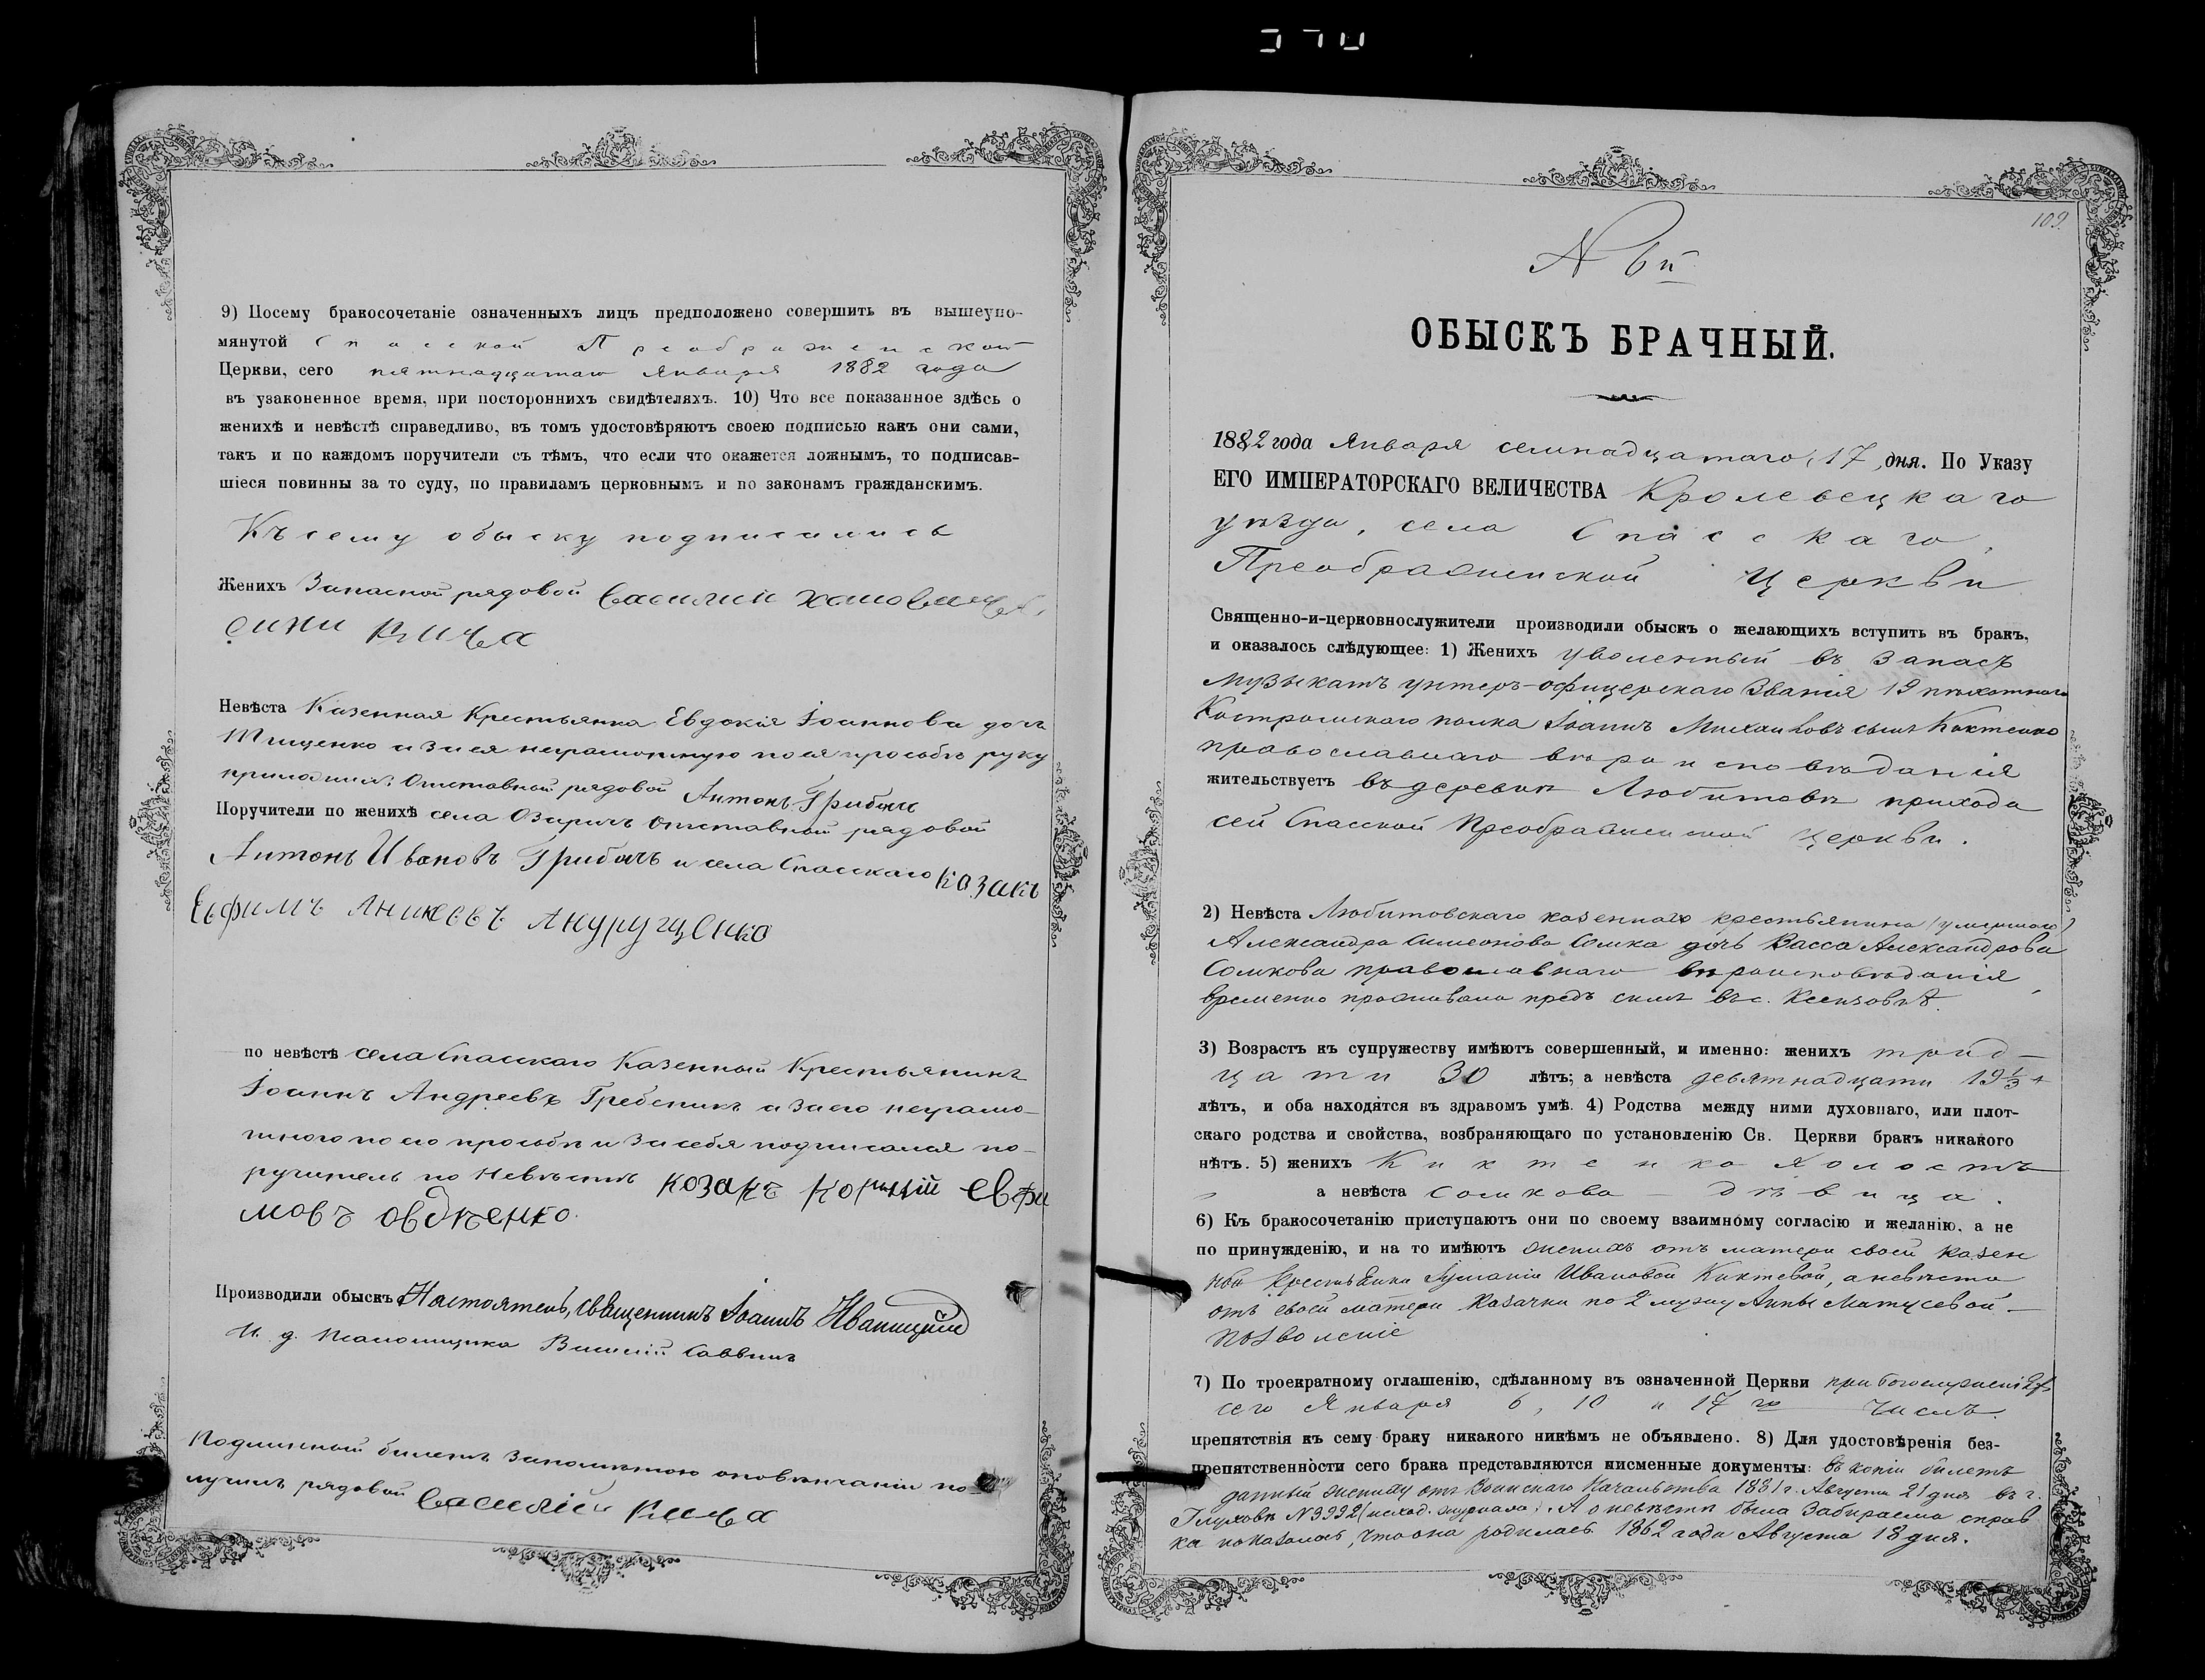 9) Посему бракосочетаніе означенныхъ лицъ предположено совершить въ вышеупо-
мянутой Спасской Преображенской
Церкви, сего пятнадцатаго Января 1882 года
въ узаконенное время, при постороннихъ свидѣтеляхъ. 10) Что все показанное здѣсь о
женихѣ и невѣстѣ справедливо, въ томъ удостовѣряютъ своею подписью какъ они сами,
такъ и по каждомъ поручители съ тѣмъ, что если что окажется ложнымъ, то подписав-
шіеся повинны за то суду, по правиламъ церковнымъ и по законамъ гражданскимъ.
Къ сему обыску подписались
Женихъ Запасной рядовой Василии
Невѣста Казенная Крестьянка Евдокія Іоаннова дочь
Тищенко а за ея неграмотную по ея просьбѣ руку
приложилъ Отставной рядовой Антонъ Грибачъ
Поручители по женихѣ села Озаричъ Отставной рядовой
Антонъ Ивановъ Грибачъ и села Спасскаго козакъ
Евфимъ Аникеевъ
по невѣстѣ села Спасскаго Казенный Крестьянинъ
Іоаннъ Андреевъ Гребеникъ а за его неграмо-
тного по его просьбѣ и за себя подписался по-
ручитель по Невѣстѣ козакъ Евфи
мовъ Овдѣенко.
Производили обыскъ Настоятель, Священникъ Іоаннъ Иваницкій
И. д. Псаломщика Саввинъ
Подлинный билетъ за помѣтою о повѣнчаніи по-
лучилъ рядовой Василій
109.
N 6й
ОБЫСКЪ БРАЧНЫЙ.
1882 года Января семнадцатаго, 17, дня. По Указу
ЕГО ИМПЕРАТОРСКАГО ВЕЛИЧЕСТВА Кролевецкаго
уѣзда, села Спасскаго,
Преображенской Церкви
Священно-и-церковнослужители производили обыскъ о желающихъ вступить въ бракъ,
и оказалось слѣдующее: 1) Женихъ уволенный въ Запасъ
Музыкантъ унтеръ-офицерскаго Званія 19 пѣхотнаго
Костромскаго полка Іоаннъ Михаиловъ сынъ Киктенко
православнаго вѣроисповѣданія
жительствуетъ въ деревнѣ Любитовѣ прихода
сей Спасской Преображенской церкви.
2) Невѣста Любитовскаго казеннаго крестьянина (умершаго)
Александра Симеонова Сомка дочь Васса Александрова
Сомкова православнаго вѣроисповѣданія,
временно проживала предъ симъ въ с. Ксензовкѣ.
3) Возрастъ къ супружеству имѣютъ совершенный, и именно: женихъ трид-
цати 30 лѣтъ; а невѣста девятнадцати 19 1/3
лѣтъ, и оба находятся въ здравомъ умѣ. 4) Родства между ними духовнаго, или плот-
скаго родства и свойства, возбраняющаго по установленію Св. Церкви бракъ никакого
нѣтъ. 5) женихъ Киктенко холостъ
а невѣста Сомкова — дѣвица.
6) Къ бракосочетанію приступаютъ они по своему взаимному согласію и желанію, а не
по принужденію, и на то имѣютъ женихъ отъ матери своей казен
ной крестьянки Ивановой Киктевой, а невѣста
отъ своей матери казачки по 2 мужу Анны Матусевой —
позволеніе
7) По троекратному оглашенію, сдѣланному въ означенной Церкви при богослуженіяхъ
сего Января 6, 10 и 17 го числъ.
препятствія къ сему браку никакого никѣмъ не объявлено. 8) Для удостовѣренія без-
препятственности сего брака представляются писменные документы: въ копіи билетъ
данный жениху отъ Воинскаго Начальства 1881 г. Августа 21 дня въ г.
Глуховѣ N 9992 (исход. журнала). А о невѣстѣ была забираема справ
ка показалось, что она родилась 1862 года Августа 18 дня.